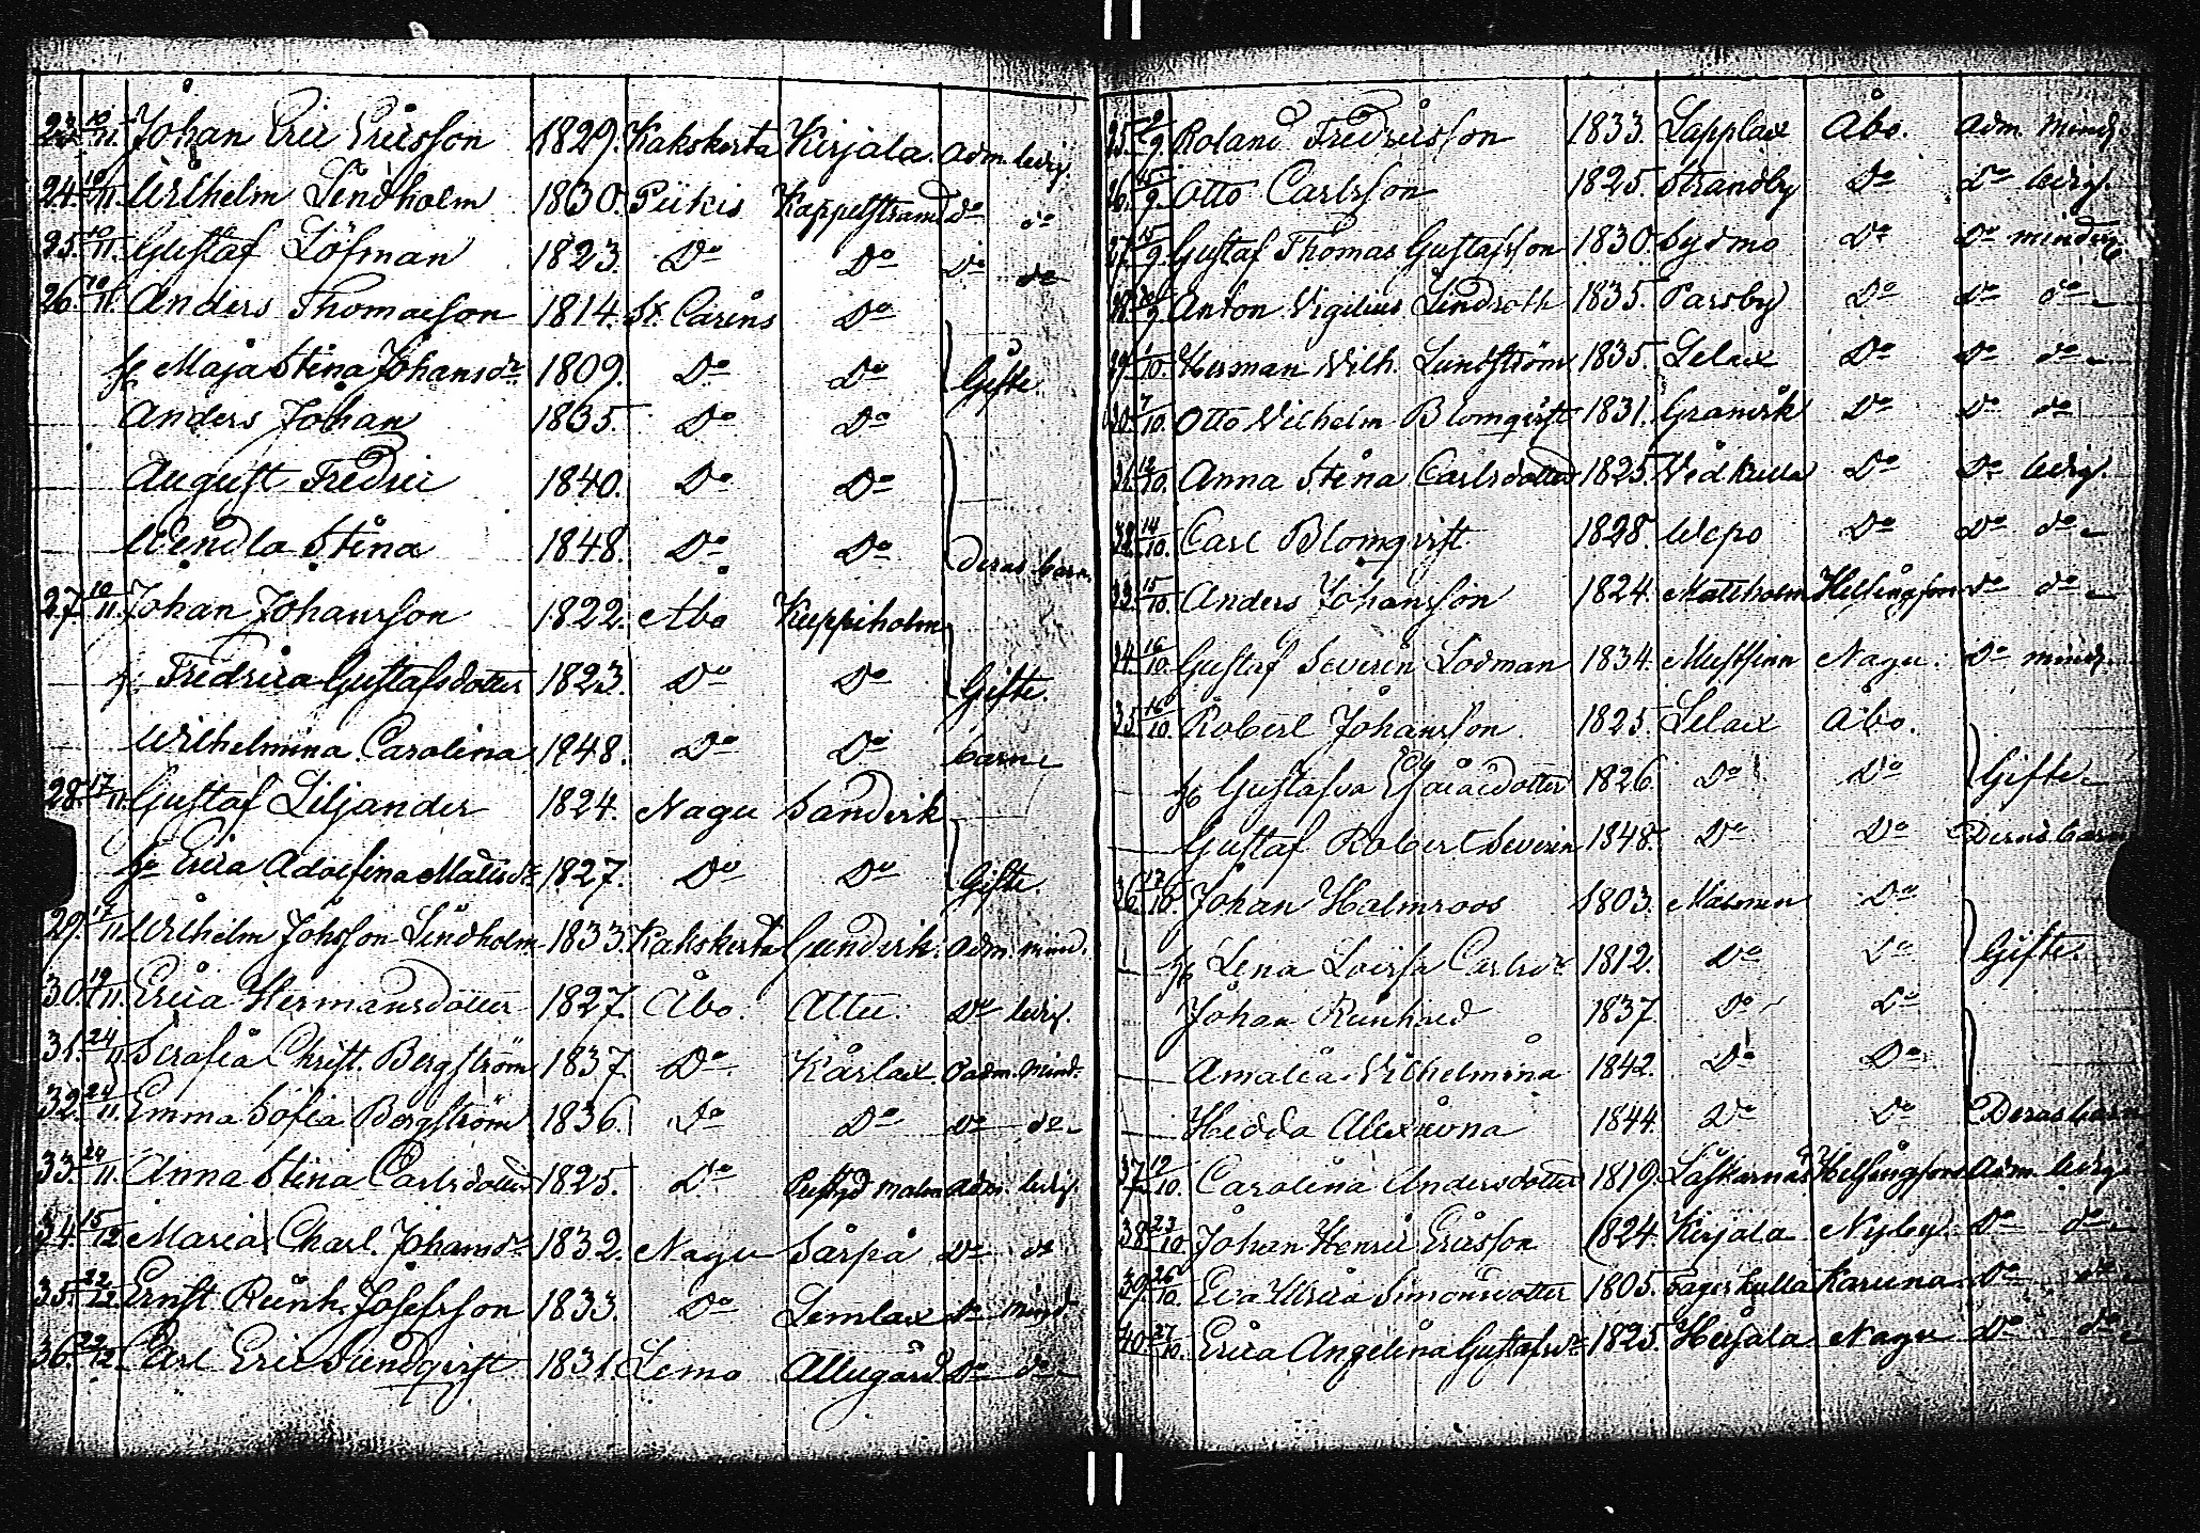 23. 10/11. Johan Eric Ericsson 1829. Kakskerta Kirjala. Adm. ledig.
24. 10/11. Wilhelm Lindholm 1830. Piikis Kappelstrand do do
25. 10/11. Gustaf Löfman 1823. Do Do Do do
26. 10/11. Anders Thomasson 1814. St. Carins Do
h. Maja Stina Johansdr 1809. Do Do Gifte.
Anders Johan 1835. Do Do
August Fredric 1840. Do Do
Wendla Stina 1848. Do Do deras barn
27. 10/11. Johan Johansson 1822. Åbo Kuppiholm
h. Fredrica Gustafsdotter 1823. Do Do Gifte.
Wilhelmina Carolina 1848. Do Do barn
28. 17/11. Gustaf Liljander 1824. Nagu Sandvik
h. Erica Adolfina Mattsdr 1827. Do Do Gifte.
29. 17/11. Wilhelm Johsson Lindholm 1833. Kakskerta Gundvik. Adm. mind.
30. 19/11. Erica Hermansdotter 1827. Åbo. Attu. Do ledig.
31. 24/11. Serafia Christ. Bergström 1837. Do Kårlax. Oadm. mind.
32. 24/11. Emma Sofia Bergström 1836. Do Do Do do
33. 24/11. Anna Stina Carlsdotter 1825. Do malm Adm. ledig.
34. 15/12. Maria Charl. Johansdr 1832. Nagu Sårpå Do do
35. 22/12. Ernst Reinh. Josefsson 1833. Do Lemlax Do mind
36. 22/12. Carl Eric Sundqvist 1831. Lemo Allugård Do do
25. 2/9. Roland Fredricsson 1833. Lapplax Åbo. Adm. mind.
26. 15/9. Otto Carlsson 1825. Strandby Do Do ledig.
27. 15/9. Gustaf Thomas Gustafsson 1830. Sydmo Do Do minderg
28. /9. Anton Vigilius Lindroth 1835. Parsby Do Do do
29. 1/10. Herman Wilh. Lundström 1835. Lelax Do Do do
30. 7/10. Otto Wilhelm Blomqvist 1831. Granvik Do Do do
31. 12/10. Anna Stina Carlsdotter 1825. Vidkulla Do Do ledig.
32. 14/10. Carl Blomqvist 1828. Wepo Do Do do
33. 15/10. Anders Johansson 1824. Mattholm Helsingfors Do do
34. 16/10. Gustaf Severin Lodman 1834. Mustfinn Nagu. Do mind.
35. 16/10. Robert Johansson. 1825. Lelax Åbo.
h. Gustafva 1826. Do Do Gifte
Gustaf Robert Severin 1848. Do Do Deras barn
36. 17/10. Johan Halmroos 1803. Malmen Do
h. Lena Lovisa Carlsdr 1812. Do Do Gifte.
Johan Reinhard 1837. Do Do
Amalia Wilhelmina 1842. Do Do
Hedda Alexivna 1844. Do Do Deras barn
37. 12/10. Carolina Andersdotter 1819. Låskarnäs Helsingfors Adm. ledig
38. 23/10. Johan Henric Ericsson 1824. Kirjala Nyby Do do
39. 26/10. Eva Ulrica Simonsdotter 1805. Fagerkulla Karuna Do do
40. 27/10. Erica Angelina Gustafsdr 1825. Kirjala Nagu Do do